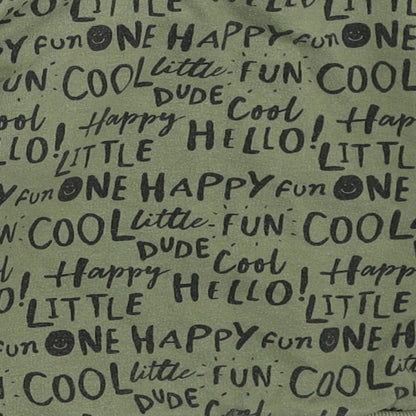 Hello! LITTLE
fun ONE HAPPY fun ONE
FUN COOL little FUN COOL
DUDE
ool Happy Cool Hap
LLO! LITTLE HELLO! LITTLE
PY fun ONE HAPPY fun ONE
N COOL little FUN COOL
DUDE
l Happy Cool Happy
O! LITTLE HELLO! LITTLE
fun ONE HAPPY fun ONE H
COOL little FUN COOL
DUDE